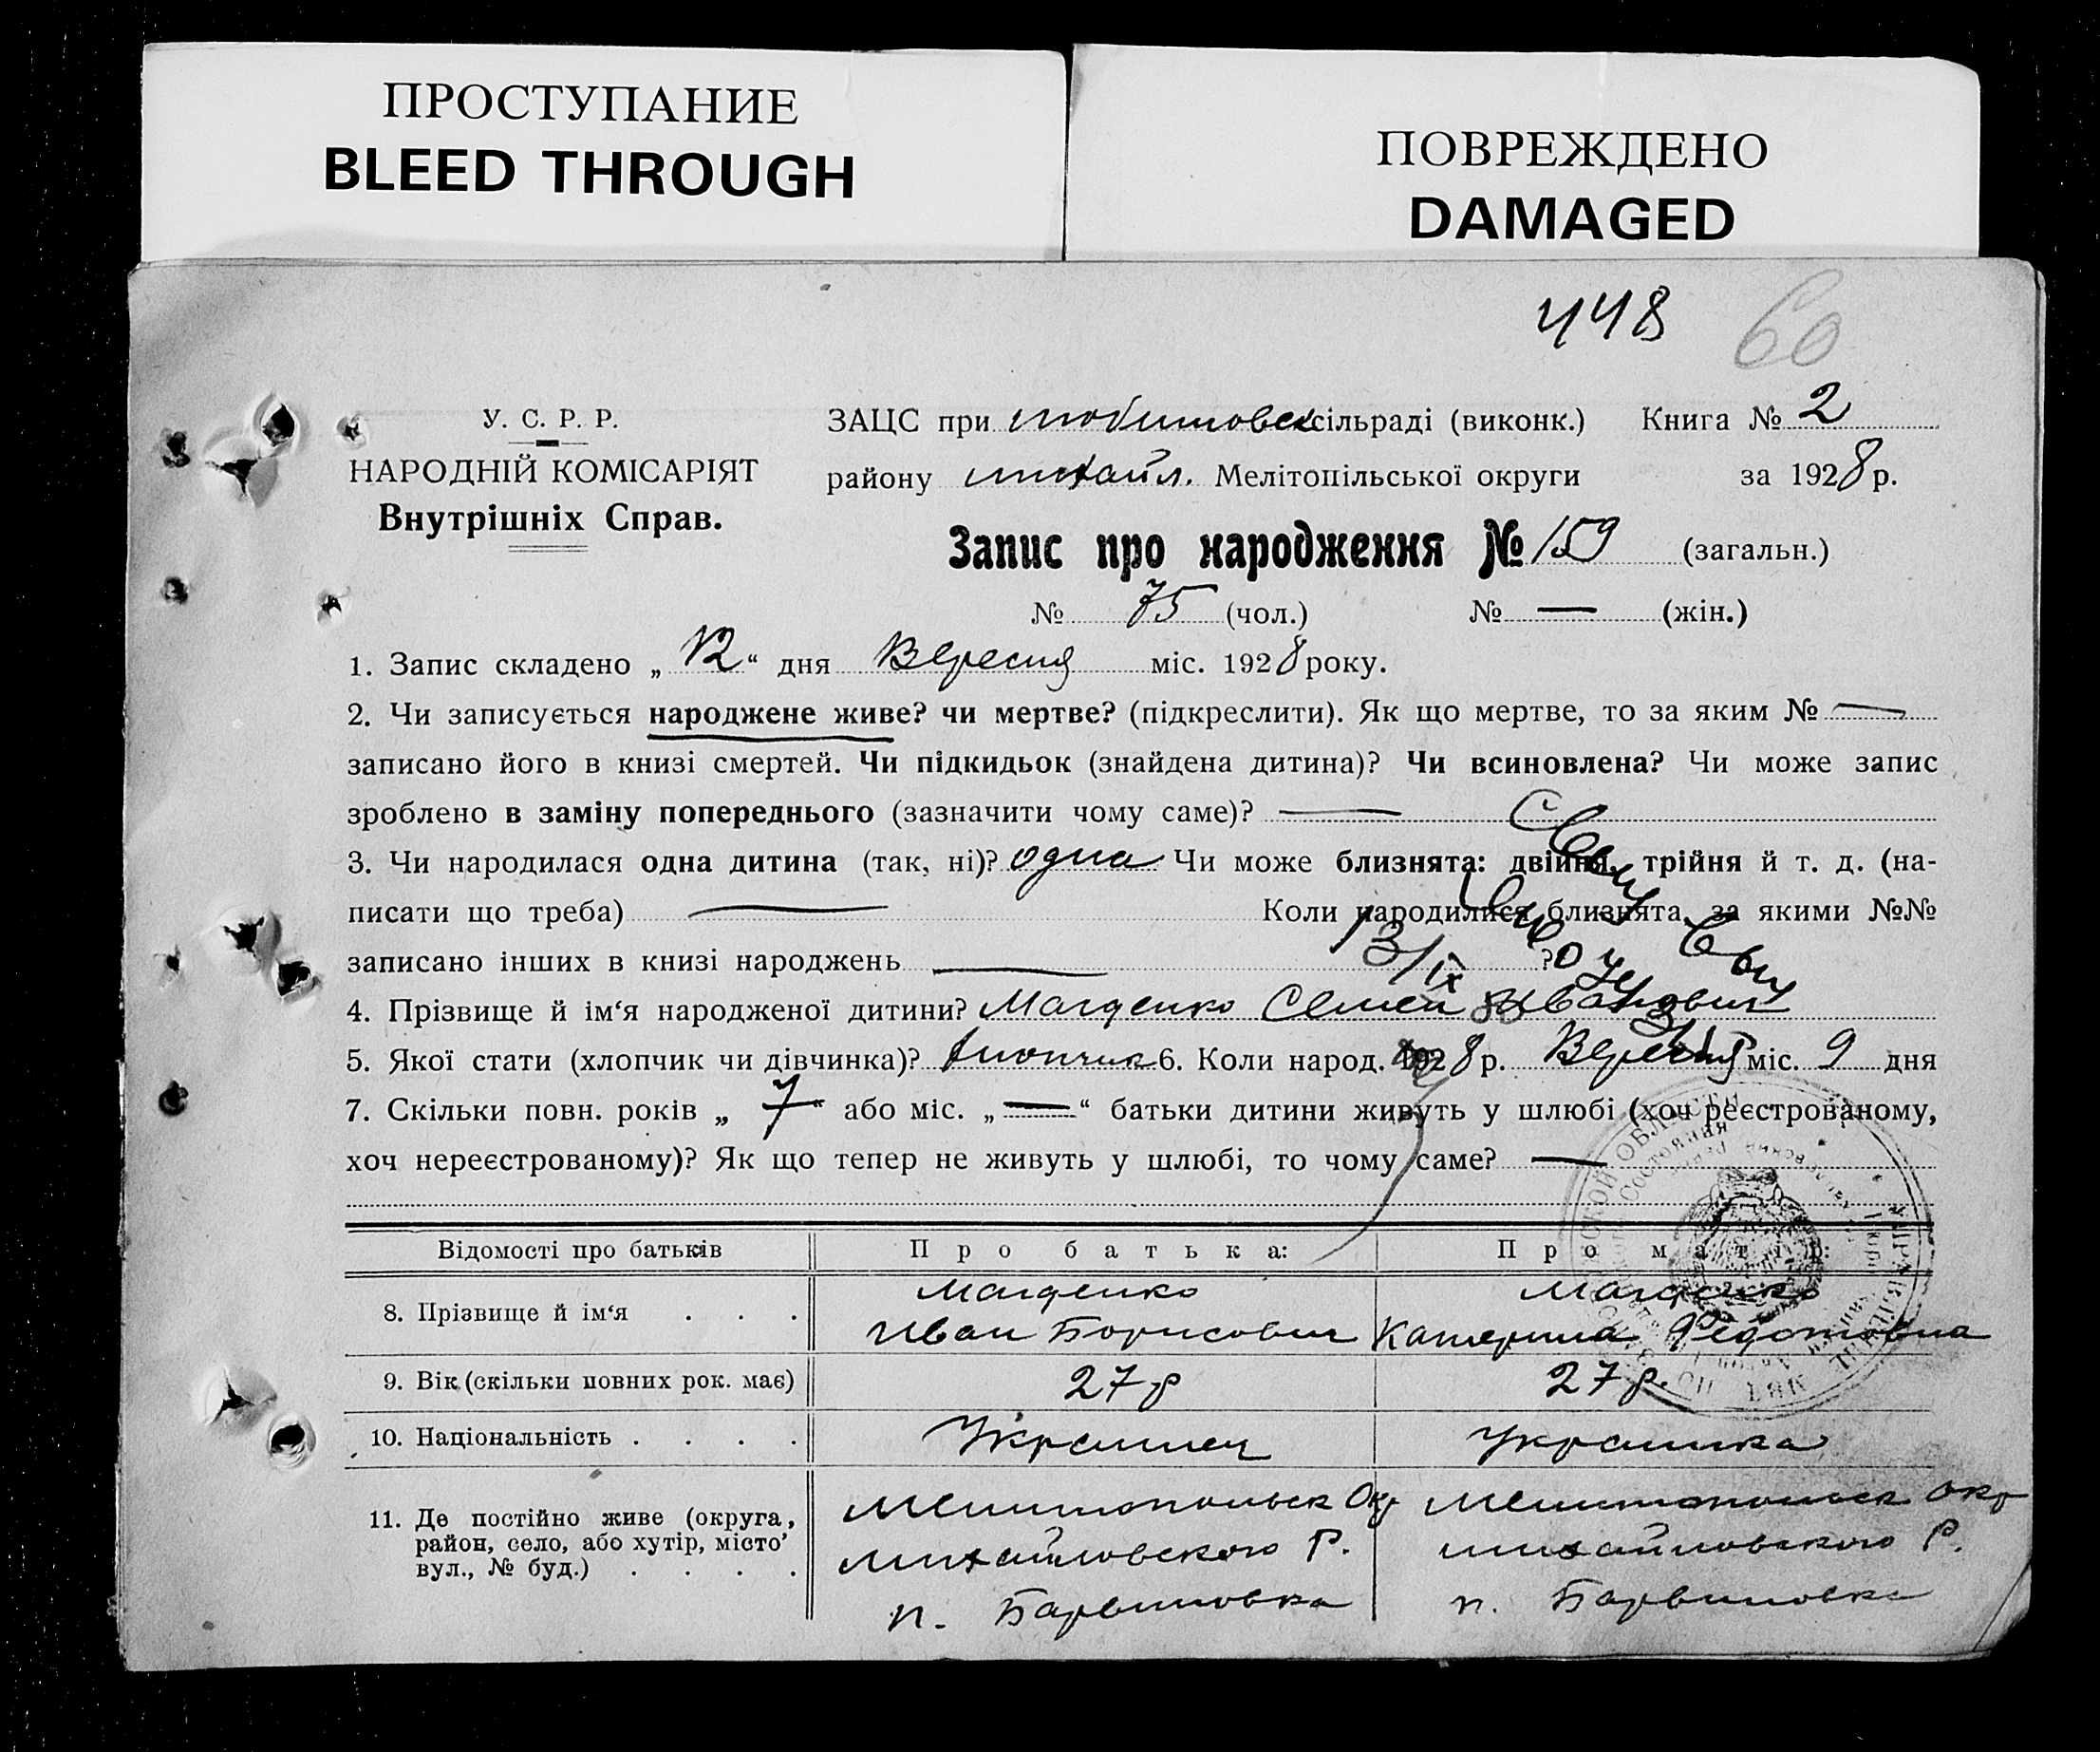 ПРОСТУПАНИЕ
BLEED THROUGH
ПОВРЕЖДЕНО
DAMAGED
448 60
У. С. Р. Р.
НАРОДНІЙ КОМІСАРІЯТ
Внутрішніх Справ.
ЗАЦС при сільраді (виконк.) Книга № 2
району михайл. Мелітопільської округи за 1928 р.
Запис про народження № 159 (загальн.)
№ 75 (чол.) № — (жін.)
1. Запис складено „ 12 “ дня Вересня міс. 1928 року.
2. Чи записується народжене живе? чи мертве? (підкреслити). Як що мертве, то за яким № —
записано його в книзі смертей. Чи підкидьок (знайдена дитина)? Чи всиновлена? Чи може запис
зроблено в заміну попереднього (зазначити чому саме)? —
3. Чи народилася одна дитина (так, ні)? одна Чи може близнята: двійня, трійня й т. д. (на-
писати що треба) — Коли народилися близнята, за якими №№
записано інших в книзі народжень — ?
13/IX
4. Прізвище й ім‘я народженої дитини? Магденко Семен Иванович
5. Якої стати (хлопчик чи дівчинка)? хлопчик 6. Коли народ. 1928 р. Вересня міс. 9 дня
7. Скільки повн. років „ 7 “ або міс. „ — “ батьки дитини живуть у шлюбі (хоч реєстрованому,
хоч нереєстрованому)? Як що тепер не живуть у шлюбі, то чому саме? —
Відомості про батьків Про батька: Про матір:
8. Прізвище й ім‘я . . . Магденко Иван Борисович Магденко Катерина Федотовна
9. Вік (скільки повних рок. має) 27 р 27 р.
10. Національність . . . . Украинец Украинка
11. Де постійно живе (округа, район, село, або хутір, місто’ вул., № буд.) . . . .
Мелитопольск Окр Мелитопольск окр
михайловского Р. михайловского Р.
п. Барвиновка п. Барвиновка